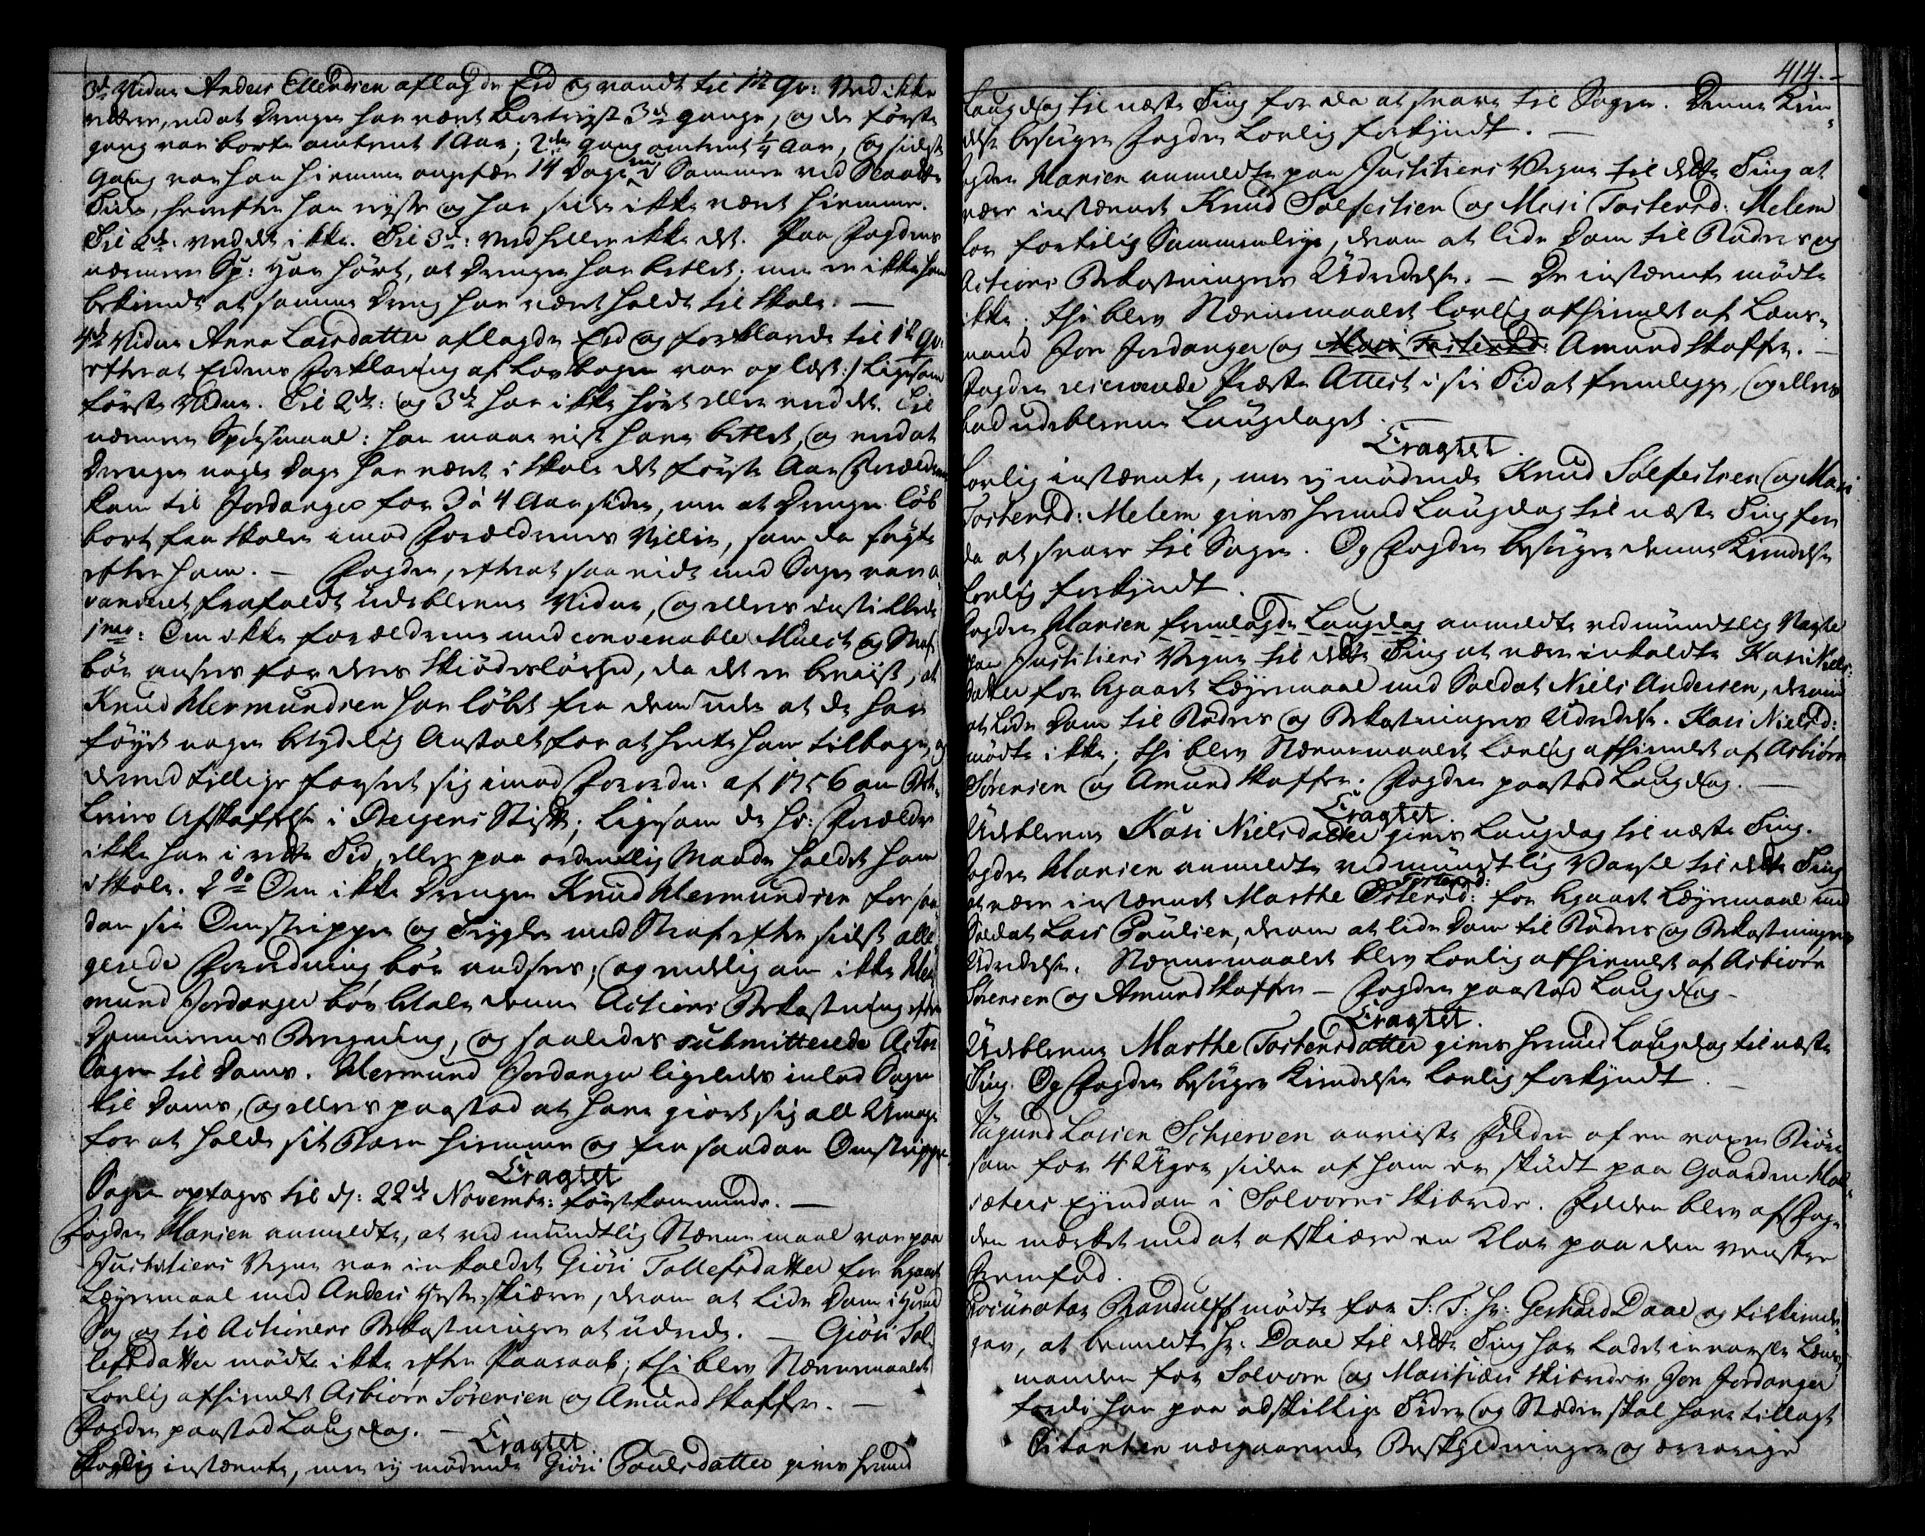 3de Vidne Anders Ellendsen aflagde Eed og vandt til 1te Qv: Veed ikke
videre, end at Drengen har været bortrejst 3de gange, og de første
gang var borte omtrent 1 Aar; 2den gang omtrent 1/4 Aar, og sidste
gang var han hiemme ongefær 14 Dage nu i Sommer ved Slaatte
Tider, hvorefter han rejste og har siden ikke været hiemme.
Til 2de: veed det ikke. Til 3de: veed heller ikke det. Paa Fogdens
nærmere Sp: Har hørt, at Drengen har betlet; men er ikke ham
bekiendt at samme Dreng har været holdt til Skole. —
4de Vidne Anna Larsdatter aflagde Eed og forklarede til 1te Qv:
efterat Eedens Forklaring af Lovbogen var oplæst :/ Ligesom
første Vidne. Til 2de: og 3de har ikke hørt eller veed det. Til
nærmere Spørsmaal: har maae vist have betlet, og veed at
Drengen nogle Dage har været i Skole det første Aar Forældrene
kom til Jordanger for 3 à 4 Aar siden, men at Drengen løb
bort fra Skolen imod Forældrenes Villie, som da søgte
efter ham. — Fogden, efterat saa vidt med Sagen var a-
vanceret frafaldt udeblevne Vidne, og ellers indstillede
1mo: Om ikke Forældrene med convenable Mulct og Straf
bør ansees for deres Skiødesløshed, da det er beviist, at
Knud Hermundsen har løbet fra dem uden at de har
føyet nogen betydelig Anstalt for at hente ham tilbage, og
derved tillige forseet sig imod Forordn: af 1756 om Bet-
leries Afskaffelse i Bergens Stift; Ligesom de hr: Forældre
ikke har i rette Tid, eller paa ordentlig Maade holdet ham
i Skole. 2do Om ikke Drengen Knud Hermundsen for saa-
dan sin Omstripen og Tryglen med Straf efter sidst alle-
gerede Forordning bør ansees; og endelig om ikke Her-
mund Jordanger bør betale denne Actions Bekostning efter
Dommerens Beregning, og saaledes submitterede Actor
Sagen til Doms. Hermund Jordanger ligeledes inlod Sagen
til Doms, og ellers paastod at have giort sig all Umage
for at holde sit Barn hiemme og fra saadan Omstrippen
Eragtet
Sagen optages til d: 22de Novembr: førstkommende. —
Fogden Hansen anmeldte, at ved mundtlig Stævnemaal var paa
Justitiens Vegne var inkaldet Giøri Tollefsdatter for begaaet
Leyermaal med Anders Hesteskiærer, derom at lide Dom i hvend
Sag og til Actionens Bekostninger at udrede. — Giøri Tol-
lefsdatter mødte ikke efter Paaraab; thi blev Stævnemaalet
Lovlig afhiemlet Asbiørn Sørensen og Amund Skaffer. —
Fogden paastod Laugdag. —
Eragtet.
Lovlig instævnte, men ej mødende Giøri Poulsdatter gives hermed
414.
Laugdag til næste Ting for da at svare til Sagen. Denne Kien-
delse besørger Fogden Lovlig forkyndt. —
Fogden Hansen anmeldte paa Justitiens Vegne til dette Ting at
være instævnet Knud Solfestsen og Mari Torstensd: Melem
for fortilig Sammenleje, derom at lide Dom til Bøders og
Actions Bekostningers Udredelse. — De instævnte mødte
ikke; thi blev Stævnemaalet lovlig afhiemlet af Lens-
mand Jon Jordanger og Mari Torstensd: Amund Skaffer. —
Fogden reserverede Præste Attest i sin Tid at fremlegge, og ellers
bad udeblevne Laugdaget
Eragtet.
Lovlig instævnte, men ej mødende Knud Solfestsen og Mari
Torstensd: Melem gives hermed Laugdag til næste Ting for
da at svare til Sagen. Og Fogden besørger denne Kiendelse
lovlig forkyndt.
Fogden Hansen fremlagde Laugdag anmeldte ved mundtlig Varsel
paa Justitiens Vegne til dette Ting at være inkaldte Kari Niels-
datter for begaaet Leyermaal med Soldat Niels Andersen, derom
at lide Dom til Bøders og Bekostningers Udredelse. Kari Nielsd:
mødte ikke; thi blev Stævnemaalet Lovlig afhiemlet af Asbiørn
Sørensen og Amund Skaffer. Fogden paastod Laugdag. —
Eragtet.
Udeblevne Kari Nielsdatter gives Laugdag til næste Ting.
Fogden Hansen anmeldte ved mundtlig Varsel til dette Ting
at være instævnet Marthe Torstensd: for begaaet Leyermaal med
Soldat Lars Poulsen, derom at lide Dom til Bøders og Bekostningers
Udredelse. Stævnemaalet blev Lovlig afhiemlet af Asbiørn
Sørensen og Amund Skaffer — Fogden paastod Laugdag —
Eragtet.
Udeblevne Marthe Torstensdatter gives hermed Laugdag til næste
Ting. Og Fogden besørger Kiendelsen Lovlig forkyndt. —
Siugund Larsen Schierven anviiste Felden af en voxen Biørn
som for 4 Uger siden af ham er skudt paa Gaarden Mol-
sæters Eyendom i Solvorns Skibrede. Felden blev af Fog-
den mærket med at afskiære en Kloe paa den venstre
fremfod.
Procurator Brandulff mødte for S: T: Hr: Gerhard Daae og tilkiende-
gav, at bemeldte Hr: Daae til dette Ting har ladet invarsle Lens-
manden for Solvorn og Marifiærens Skibreder Jon Jordanger
fordi han paa adskillige Tider og Stæder skal have tillagt
Citanten nærgaaende Beskyldninger og ærerørige